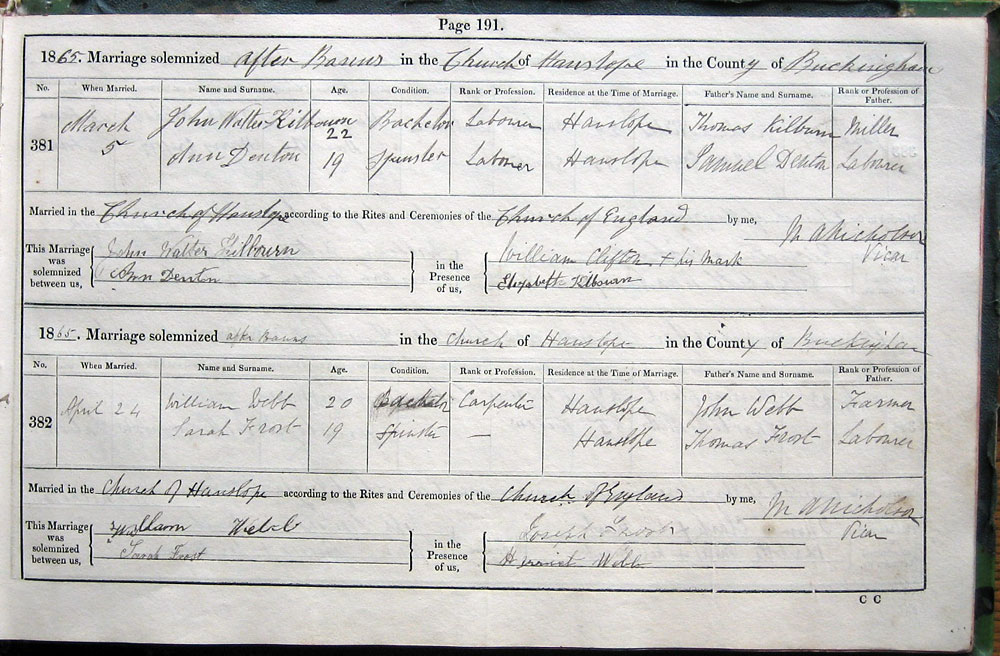 Page 191.
1865. Marriage solemnized after Banns in the Church of Hanslope in the County of Buckingham
No. When Married. Name and Surname. Age. Condition. Rank or Profession. Residence at the Time of Marriage. Father's Name and Surname. Rank or Profession of Father.
381 March 5 John Walter Kilbourn 22 Bachelor Labourer Hanslope Thomas Kilburn Miller
Ann Denton 19 Spinster Laborer Hanslope Samuel Denton Labourer
Married in the Church of Hanslope according to the Rites and Ceremonies of the Church of England by me, M A Nicholson
Vicar
This Marriage was solemnized between us,
John Walter Kilbourn
Ann Denton
in the Presence of us,
William Clifton + his mark
Elizabeth Kilbourn
1865. Marriage solemnized after Banns in the Church of Hanslope in the County of Buckingham
No. When Married. Name and Surname. Age. Condition. Rank or Profession. Residence at the Time of Marriage. Father's Name and Surname. Rank or Profession of Father.
382 April 24 William Webb 20 Bachelor Carpenter Hanslope John Webb Farmer
Sarah Frost 19 Spinster — Hanslope Thomas Frost Labourer
Married in the Church of Hanslope according to the Rites and Ceremonies of the Church of England by me, M A Nicholson
Vicar
This Marriage was solemnized between us,
William Webb
Sarah Frost
in the Presence of us,
Joseph
Harriet Webb
C C